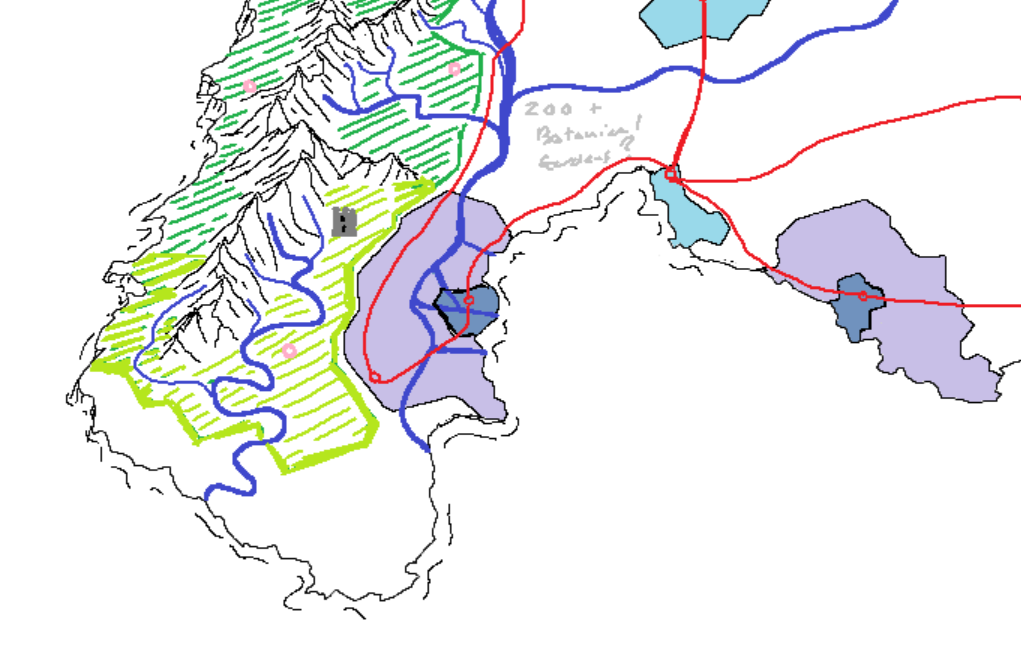 200 +
Botanical
Gardens?